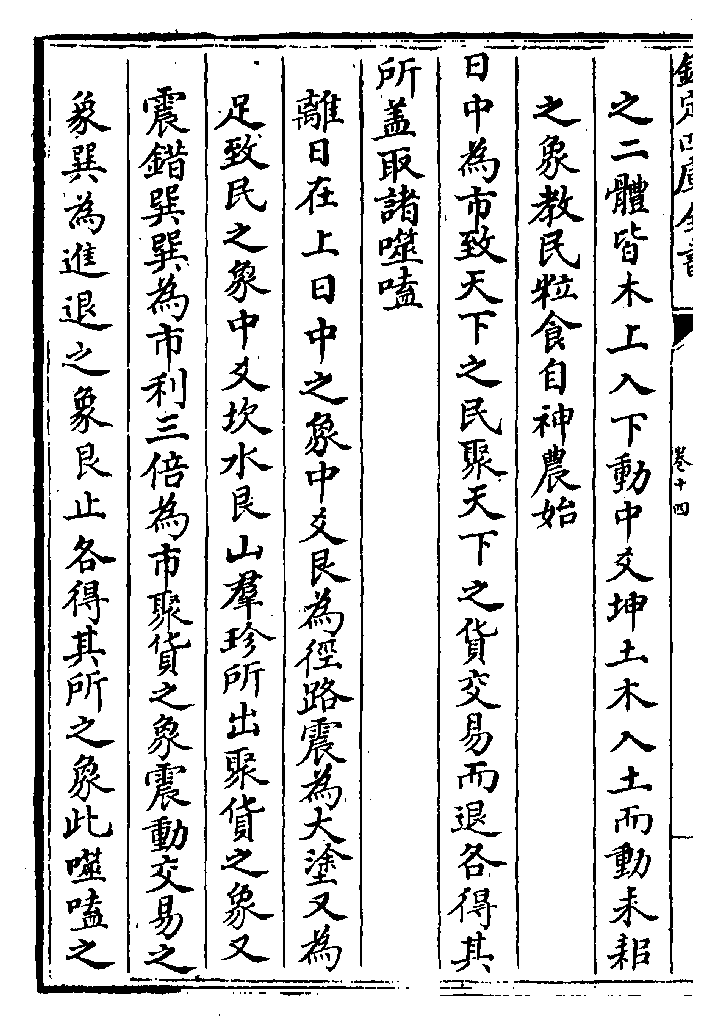 欽定四庫全書
卷十四
之二體皆木上入下動中爻坤土木入土而動耒耜
之象教民粒食自神農始
日中為市致天下之民聚天下之貨交易而退各得其
所盖取諸噬嗑
離日在上日中之象中爻艮為徑路震為大塗又為
足致民之象中爻坎水艮山羣珍所出聚貨之象又
震錯巽巽為市利三倍為市聚貨之象震動交易之
象巽為進退之象艮止各得其所之象此噬嗑之